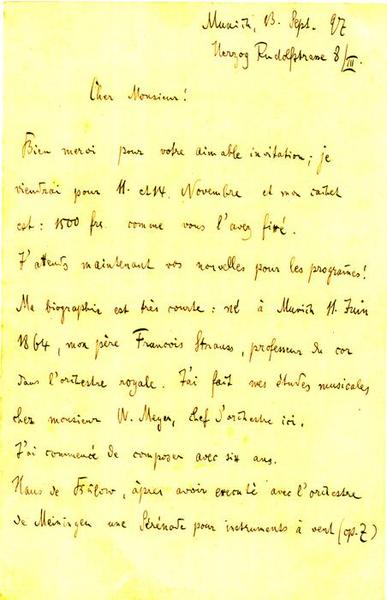 Munich, 13. Sept. 97
Herzog Rudolfstrasse 8/III.
Cher Monsieur!
Bien merci pour votre aimable invitation; je
viendrai pour 11. et 14. Novembre et mon cachet
est: 1500 frs. comme vous l'avez fixé.
J'attends maintenant vos nouvelles pour les programes!
Ma biographie est très courte: né à Munich 11. Juin
1864, mon père François Strauss, professeur du cor
dans l'orchestre royale. J'ai fait mes études musicales
chez monsieur W. Meyer, chef d'orchestre ici.
J'ai commencé de composer avec six ans.
Hans de Bülow, àpres avoir executé avec l'orchestre
de Meiningen une Sérénade pour instruments à vent (op. 7)